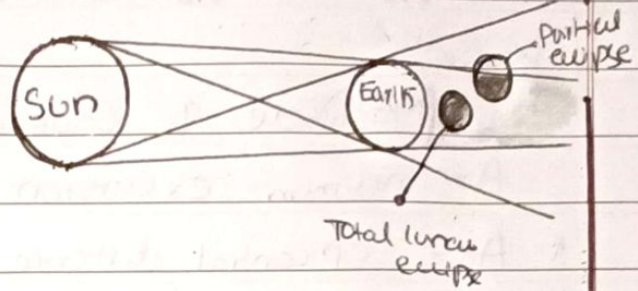 Sun
Earth
Partical
eclipse
Total lunar
eclipse